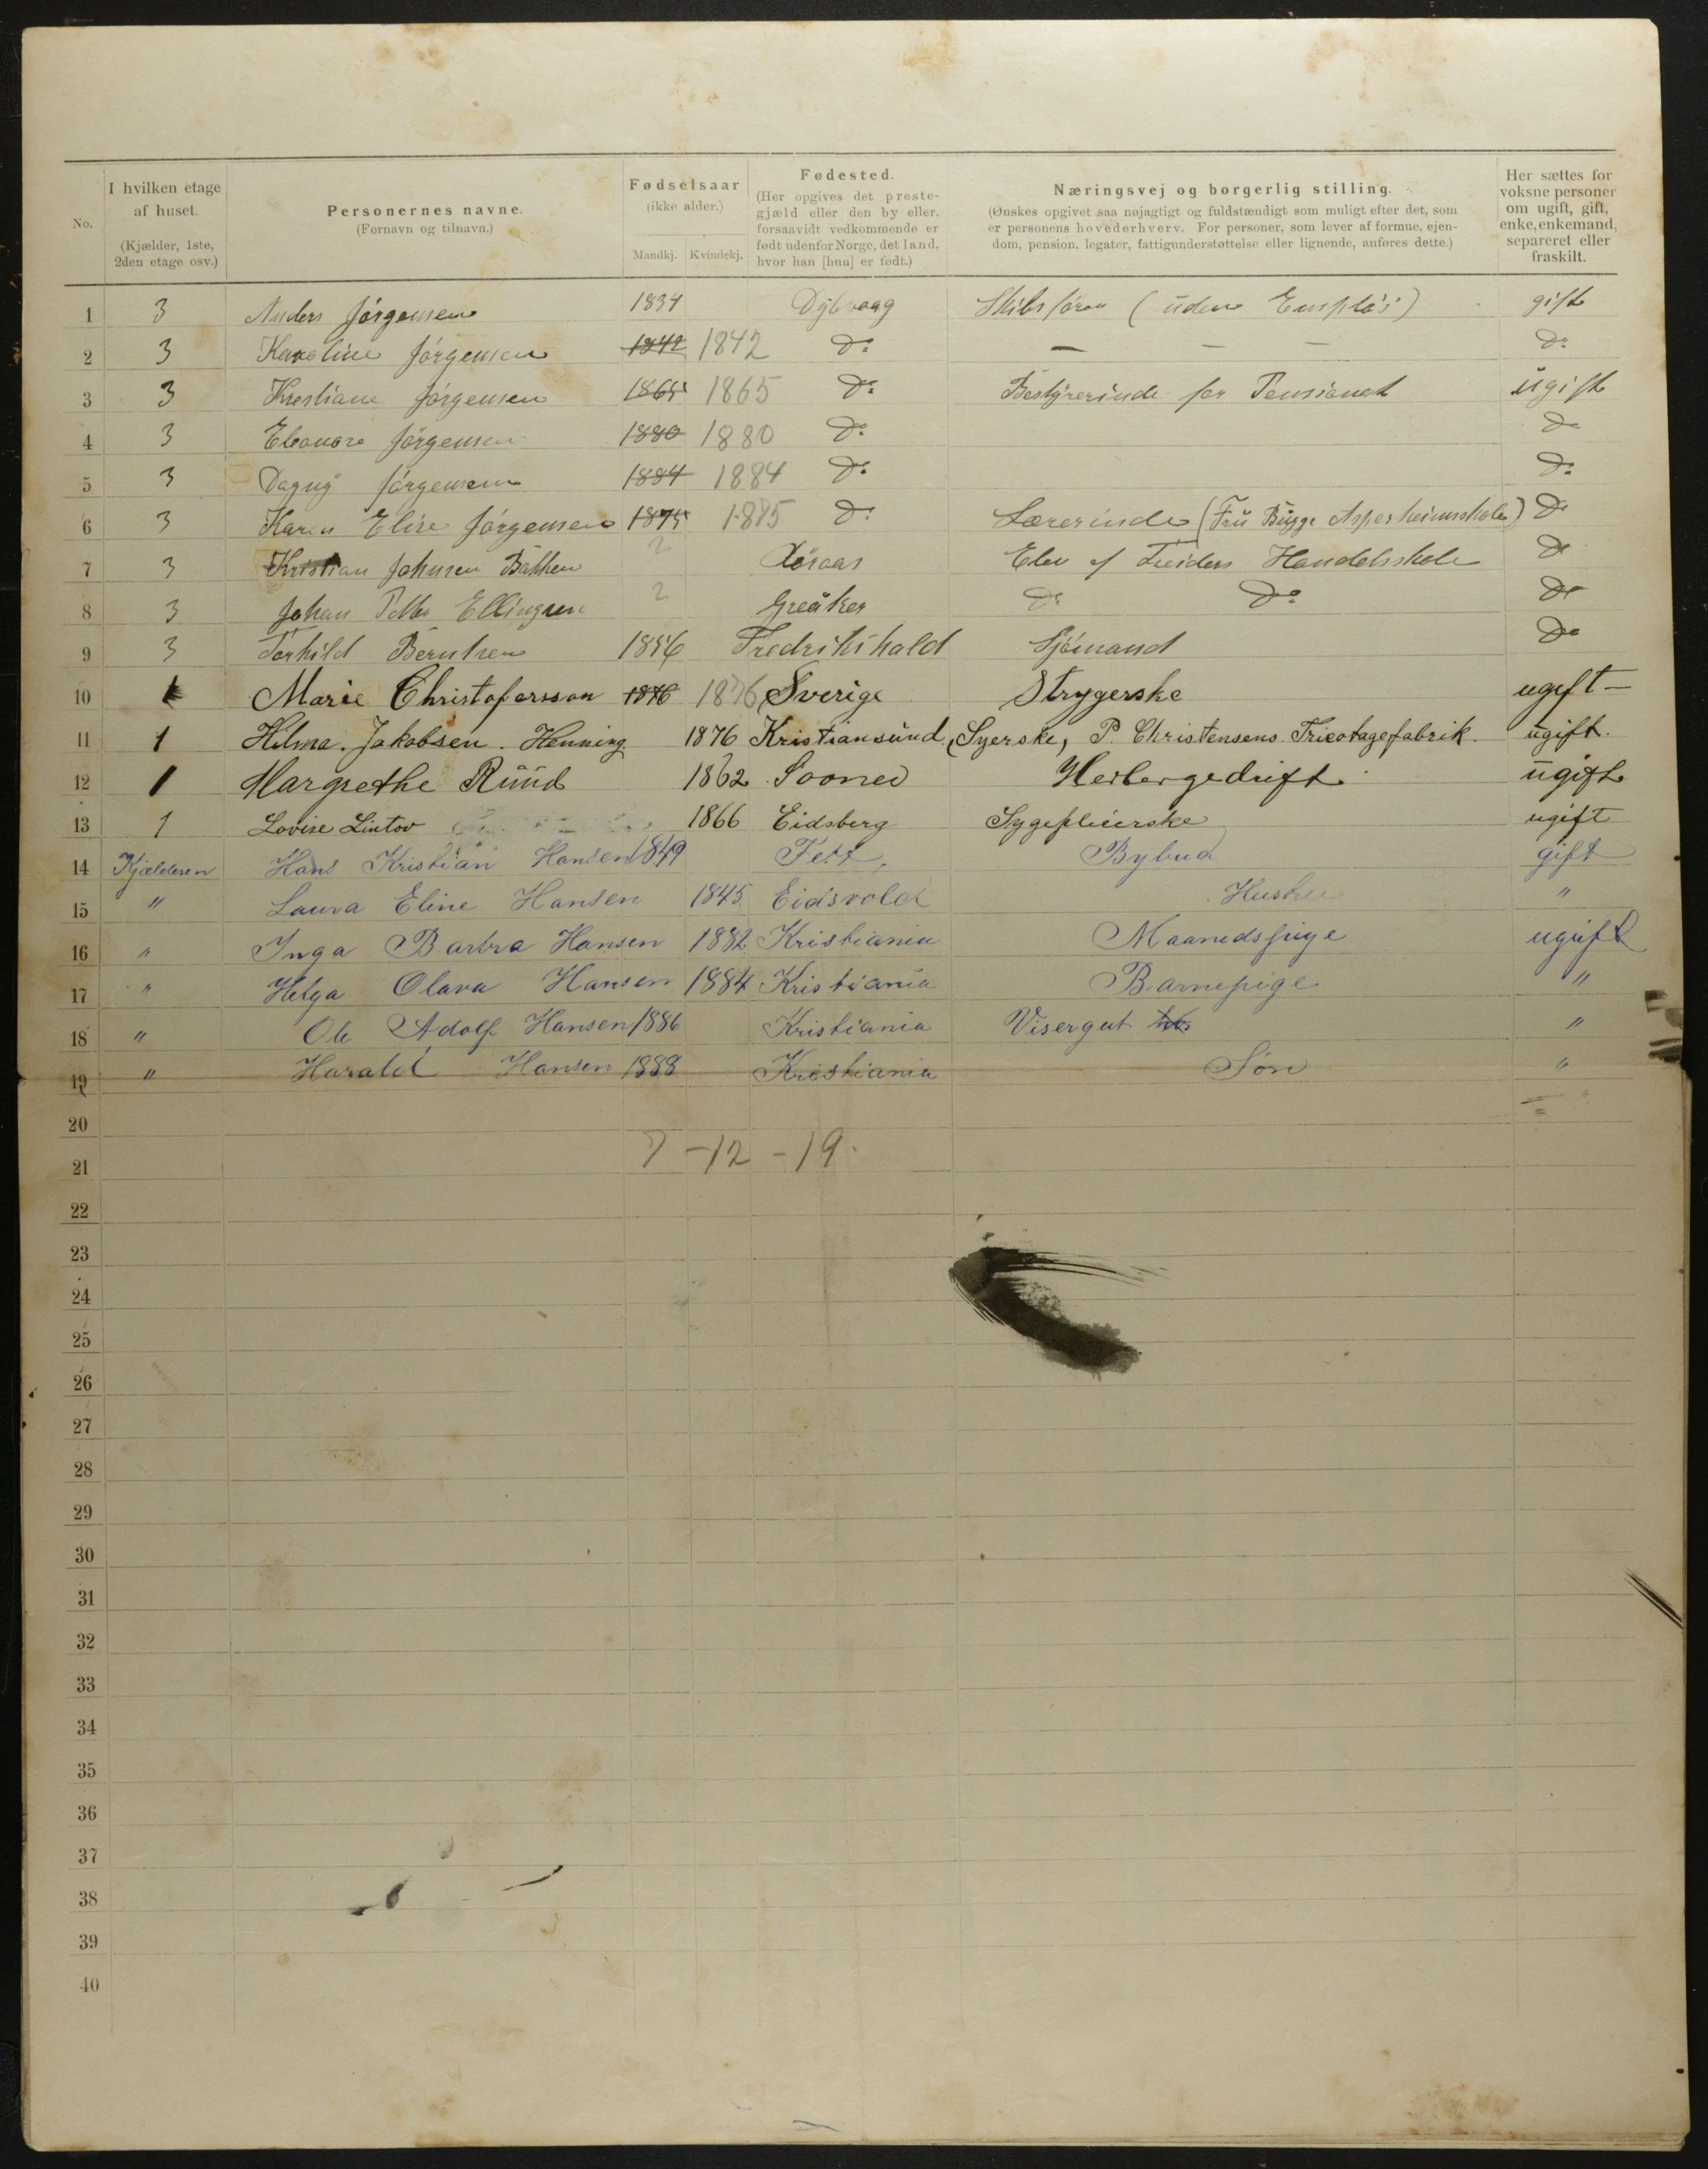 No.
I hvilken etage af huset. (Kjælder, 1ste, 2den etage osv.)
Personernes navne. (Fornavn og tilnavn.)
Fødselsaar (ikke alder.) Mandkj. Kvindekj.
Fødested. (Her opgives det prestegjæld eller den by eller, forsaavidt vedkommende er født udenfor Norge, det land, hvor han [hun] er født.)
Næringsvej og borgerlig stilling. (Ønskes opgivet saa nøjagtigt og fuldstændigt som muligt efter det, som er personens hovederhverv. For personer, som lever af formue, ejendom, pension, legater, fattigunderstøttelse eller lignende, anføres dette.)
Her sættes for voksne personer om ugift, gift, enke, enkemand, separeret eller fraskilt.
1 3 Anders Jørgensen 1834 Dybvaag Skibsfører (uden gift
2 3 Karoline Jørgensen 1842 1842 Do — — — Do
3 3 Kristiane Jørgensen 1865 1865 Do Bestyrerinde for Pensionat ugift
4 3 Eleonore Jørgensen 1880 1880 Do Do
5 3 Dagny Jørgensen 1884 1884 Do Do
6 3 Karen Elise Jørgensen 1875 1875 Do Lærerinde (Fru Bugge Do
7 3 Kristian Johnsen Bakken 2 Elev af Treiders Handelsskole Do
8 3 Johan Ellingsen 2 Greåker Do Do Do
9 3 Torkild Berntsen 1856 Fredrikshald Sjømand Do
10 Marie Christofersson 1876 1876 Sverige Strygerske ugift —
11 1 Hilma. Jakobsen. Henning. 1876 Kristiansund, Syerske, P. Christensens Tricotagefabrik. ugift.
12 1 Margrethe Ruud 1862 Sooner Herbergedrift. ugift
13 1 Lovise Lintov 1866 Eidsberg Sygepleierske ugift
14 Kjælderen Hans Kristian Hansen 1849 Fett, Bybud gift
15 " Laura Eline Hansen 1845 Eidsvold Hustru "
16 " Inga Barbra Hansen 1882 Kristiania Maanedspige ugift
17 " Helga Olava Hansen 1884 Kristiania Barnepige "
18 " Ole Adolf Hansen 1886 Kristiania Visergut "
19 " Harald Hansen 1888 Kristiania Søn "
20
7 - 12 - 19.
21
22
23
24
25
26
27
28
29
30
31
32
33
34
35
36
37
38
39
40